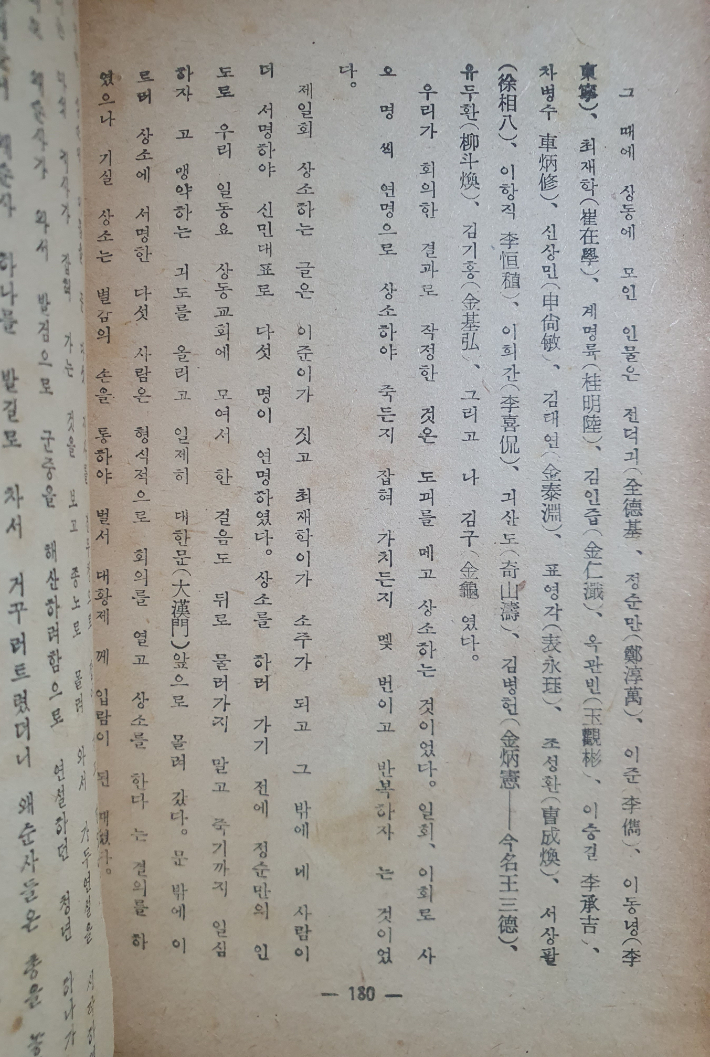 그 때에 상동에 모인 인물은 전덕기(全德基、정순만(鄭淳萬)、이준 李儁)、이동녕(李
東寧)、최재학(崔在學)、계명륙(桂明陸)、김인즙(金仁濈)、옥관빈(玉觀彬、이승길 李承吉、
차병수 車炳修)、신상민(申尙敏、김태연 金泰淵)、표영각(表永珏)、조성환(曺成煥)、서상팔
(徐相八)、이항직 李恒稙)、이희간(李喜侃)、긔산도(奇山濤)、김병헌(金炳憲──今名王三德)、
유두환(柳斗煥)、김기홍(金基弘)、그리고 나 김구(金龜 였다。
우리가 회의한 결과로 작정한 것은 도끼를 메고 상소하는 것이었다。일회、이회로 사
오 명 씩 연명으로 상소하야 죽든지 잡혀 가치든지 몇 번이고 반복하자 는 것이었
다。
제일회 상소하는 글은 이준이가 짓고 최재학이가 소주가 되고 그 밖에 네 사람이
더 서명하야 신민대표로 다섯 명이 연명하였다。상소를 하러 가기 전에 정순만의 인
도로 우리 일동요 상동교회에 모여서 한 걸음도 뒤로 물러가지 말고 죽기까지 일심
하자 고 맹약하는 긔도를 올리고 일제히 대한문(大漢門)앞으로 몰려 갔다。문 밖에 이
르러 상소에 서명한 다섯 사람은 형식적으로 회의를 열고 상소를 한다 는 결의를 하
였으나 기실 상소는 별감의 손을 통하야 벌서 대황제 께 입람이 된 때였다。
— 180 —
가는 것을 보고 종노로 몰려 와서 가두연설을
와서 발검으로 군중을 해산하려함으로 연설하던 청년 하나가
하나를 발길로 차서 거꾸러트렸더니 왜순사들은 총을